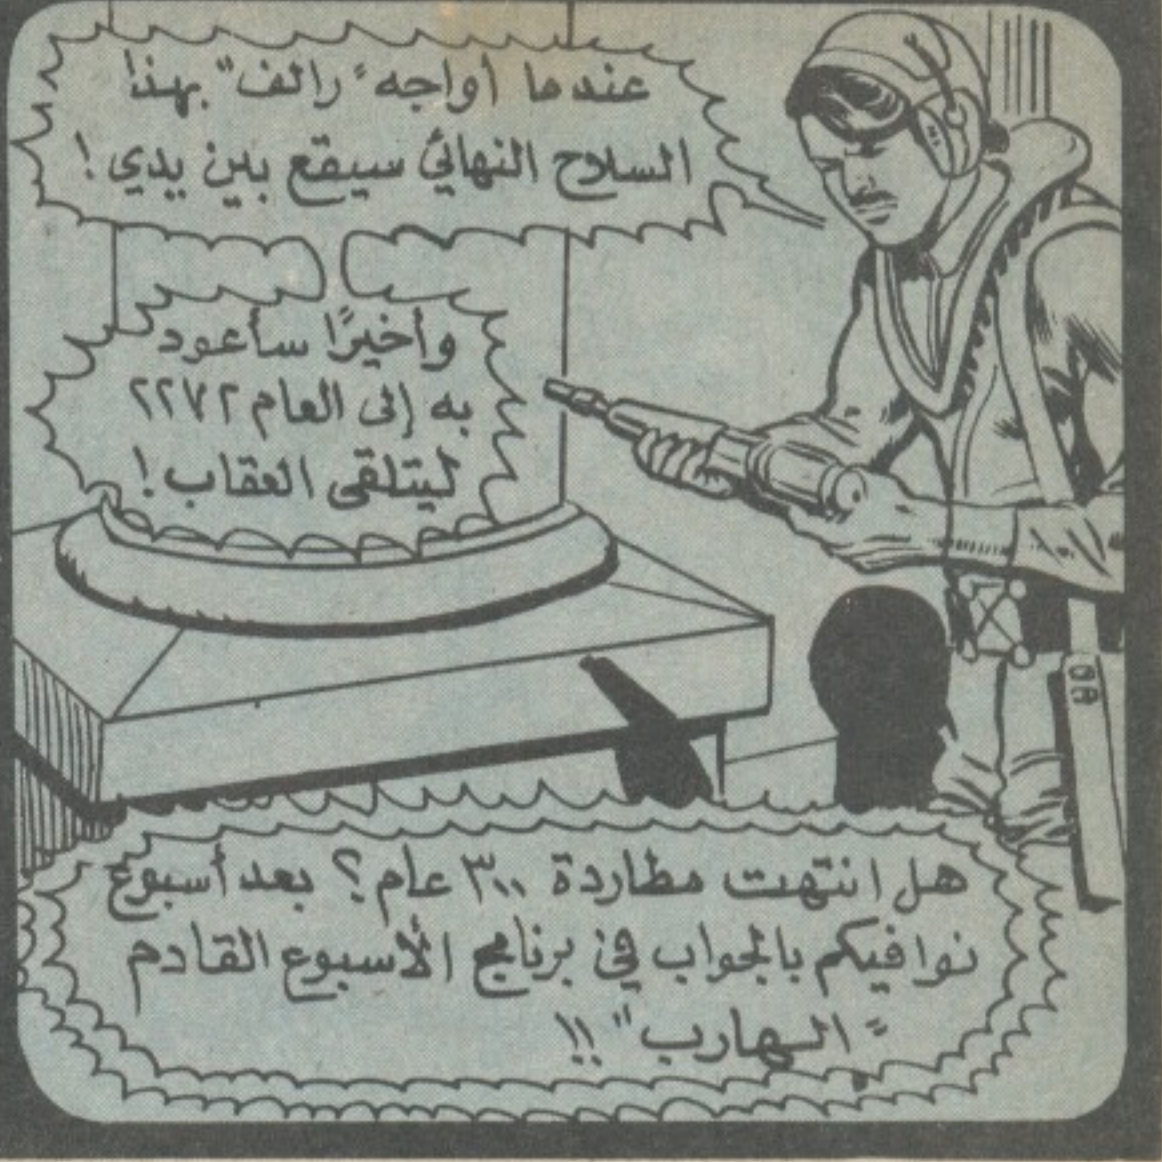 عندما أواجه "رالف" بهذا
السلاح النهائي سيقع بين يدي!
وأخيرًا سأعود
به إلى العام ٢٢٧٢
ليتلقى العقاب!
هل انتهت مطاردة ٣٠٠ عام؟ بعد أسبوع
نوافيكم بالجواب في برنامج الأسبوع القادم
"الهارب"!!